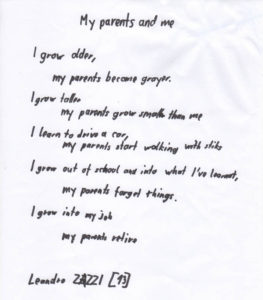 My parents and me
I grow older,
my parents become grayer.
I grow taller
my parents grow smaller than me
I learn to drive a car,
my parents start walking with stiks
I grow out of school and into what I've learnt,
my parents forget things.
I grow into my job
my parents retire
Leandro [13]